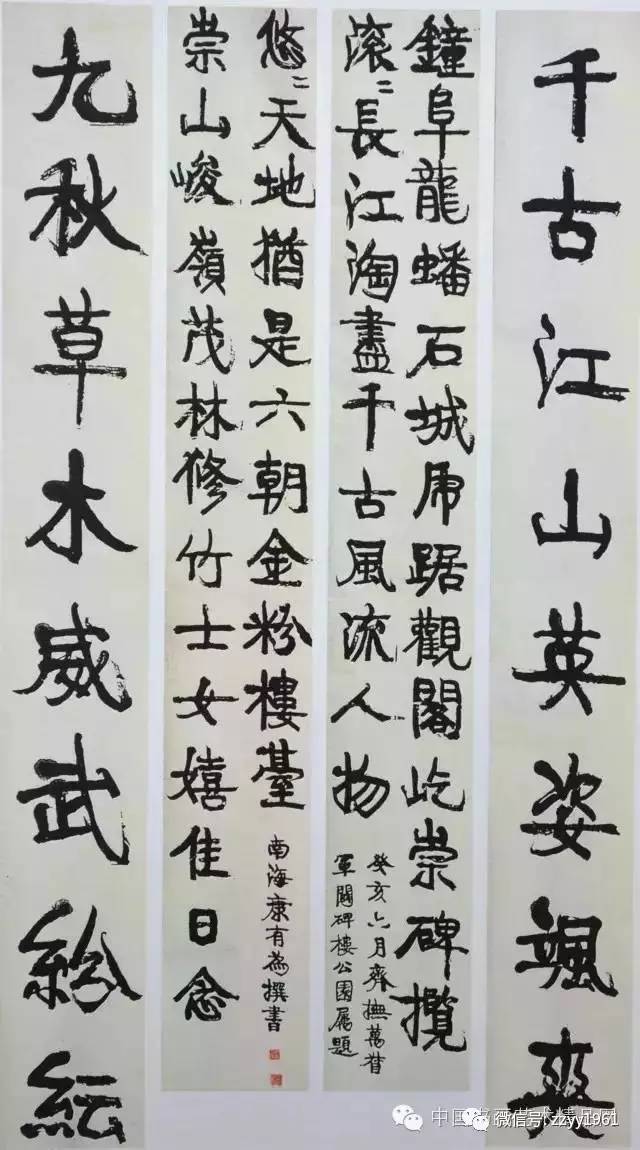 千古江山英姿颯爽
鐘阜龍蟠石城虎踞觀閣屹崇碑攬
滚〻長江淘盡千古風流人物
癸亥六月齊撫萬督
軍闢碑樓公園屬題
崇山峻嶺茂林修竹士女嬉佳日念
悠〻天地猶是六朝金粉樓臺
南海康有為撰書
九秋草木威武紛紜
微信号: zzyy1961